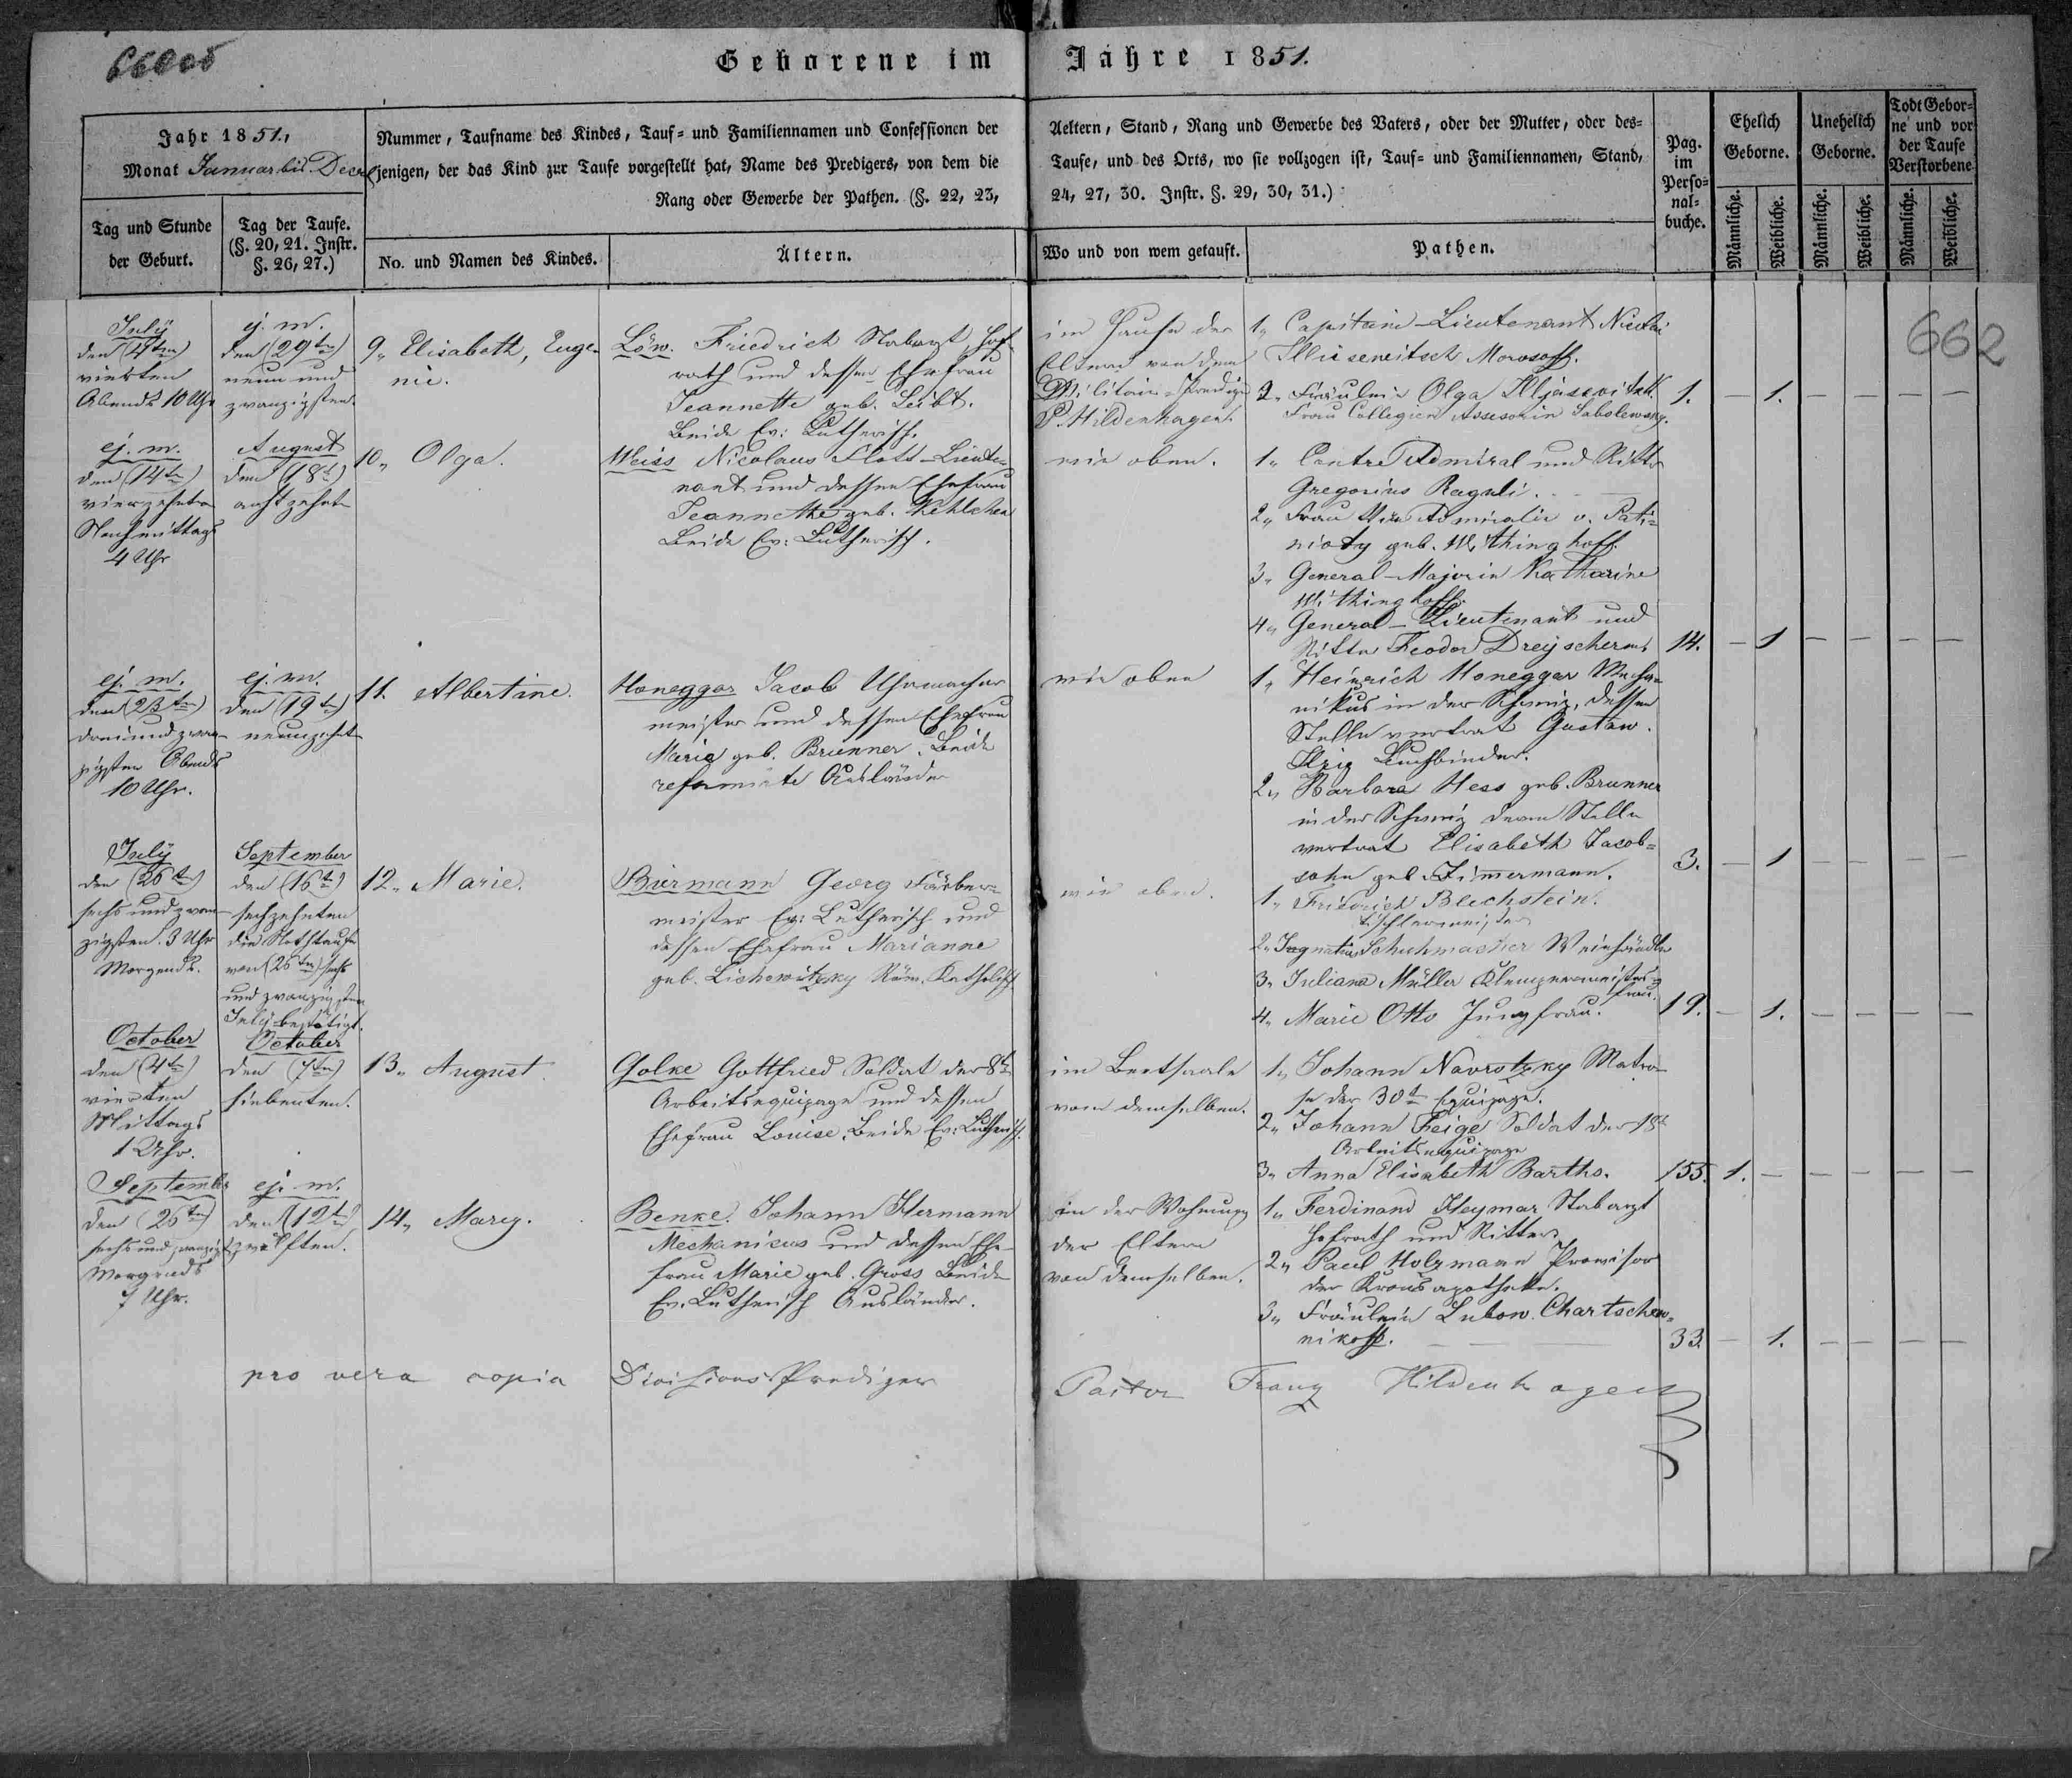 Geborene im Jahre 1851.
662
Jahr 1851,
Monat Januar bis Decr
Nummer, Taufname des Kindes, Tauf- und Familiennamen und Confessionen der Aeltern, Stand, Rang und Gewerbe des Vaters, oder der Mutter, oder des-
jenigen, der das Kind zur Taufe vorgestellt hat, Name des Predigers, von dem die Taufe, und des Orts, wo sie vollzogen ist, Tauf- und Familiennamen, Stand,
Rang oder Gewerbe der Pathen. (§. 22, 23, 24, 27, 30. Instr. §. 29, 30, 31.)
Tag und Stunde
der Geburt.
Tag der Taufe.
(§. 20, 21. Instr.
§. 26, 27.)
No. und Namen des Kindes.
Ältern.
Wo und von wem getauft.
Pathen.
Pag.
im
Perso-
nal-
buche.
Ehelich
Geborne.
Unehelich
Geborne.
Todt Gebor-
ne und vor
der Taufe
Verstorbene
Männliche.
Weibliche.
Männliche.
Weibliche.
Männliche.
Weibliche.
July
den (4ten)
vierten
Abends 10 Uhr
ej. m.
den (29ten)
neun und
zwanzigsten.
9,, Elisabeth, Euge-
nie.
Löw. Friedrich Stabarzt, Hof-
rath und dessen Ehefrau
Jeannette geb. Leibt.
Beide Ev: Lutherisch.
im Hause der
Eltern von dem
Militair-Prediger
P. Hildenhagen.
1,, Capitain-Lieutenant Nicolai
Morosoff.
2,, Fräulein Olga
Frau Collegien Assesorin
1. — 1. — — — —
ej. m.
den (14ten)
vierzehnten
Nachmittags
4 Uhr
August
den (18t)
achtzehnten
10,, Olga.
Weiss Nicolaus Flott-Lieute-
nant und dessen Ehefrau
Jeannette geb.
Beide Ev: Lutherisch.
wie oben.
1,, Contre Admiral und Ritter
Gregorius Raguli.
2,, Frau Vice Admiralin v. Pati-
nioty geb.
3,, General-Majorin Katharine
4,, General-Lieutenant und
Ritter Feodor
14. — 1 — — — —
ej. m.
den (23ten)
dreiundzwan-
zigsten Abends
10 Uhr.
ej. m.
den (19ten)
neunzehnten
11. Albertine.
Honeggar Jacob Uhrmacher
meister und dessen Ehefrau
Maria geb. Brunner. Beide
reformirte Ausländer
wie oben
1,, Heinrich Honeggar Mecha-
nikus in der Schweiz, dessen
Stelle vertrat Gustaw
Buchbinder.
2,, Barbara Hess geb. Brunner
in der Schweiz deren Stelle
vertrat Elisabeth Jacob-
sohn geb. Zimmermann.
3. — 1 — — — —
July
den (26ten)
sechs und zwan-
zigsten. 3 Uhr
Morgends.
September
den (16t)
sechzehnten
die Nothtaufe
von (26ten) sechs
und zwanzigsten
July bestätigt.
12,, Marie.
Biermann Georg Färber-
meister Ev: Lutherisch und
dessen Ehefrau Marianne
geb. Lichowitzky Röm. Katholisch
wie oben.
1,, Friedrich Blechstein.
Tischlermeister
2,, Ingnatius Schuhmacher Weinhändler
3,, Juliana Müller Klempnermeisters-
frau.
4,, Marie Otto Jungfrau.
19. — 1. — — — —
October
den (4ten)
vierten
Mittags
1 Uhr.
October
den (7ten)
siebenten.
13,, August.
Golke Gottfried Soldat der 8t
Arbeitsequipage und dessen
Ehefrau Louise. Beide Ev: Lutherisch.
im Beetsaale
vom demselben.
1,, Johann Navrotzky Matro-
se der 30t Equipage.
2,, Johann Feige Soldat der 18t
Arbeitsequipage
3,, Anna Elisabeth Barths.
155. 1. — — — — —
September
den (26ten)
sechs und zwanzigst
Morgends
7 Uhr.
ej. m.
den (12t)
zwölften.
14,, Mary.
Benke. Johann Hermann
Mechanicus und dessen Ehe-
frau Marie geb. Gross Beide
Ev. Lutherisch Ausländer.
in der Wohnung
der Eltern
von demselben.
1,, Ferdinand Heymar Stabarzt
Hofrath und Ritter
2,, Paul Holzmann Provisor
der Kronsapotheke.
3,, Fräulein Lubow. Chartschew-
nikoff.
33. — 1. — — — —
pro vera copia Divisions Prediger Pastor Franz Hildenhagen